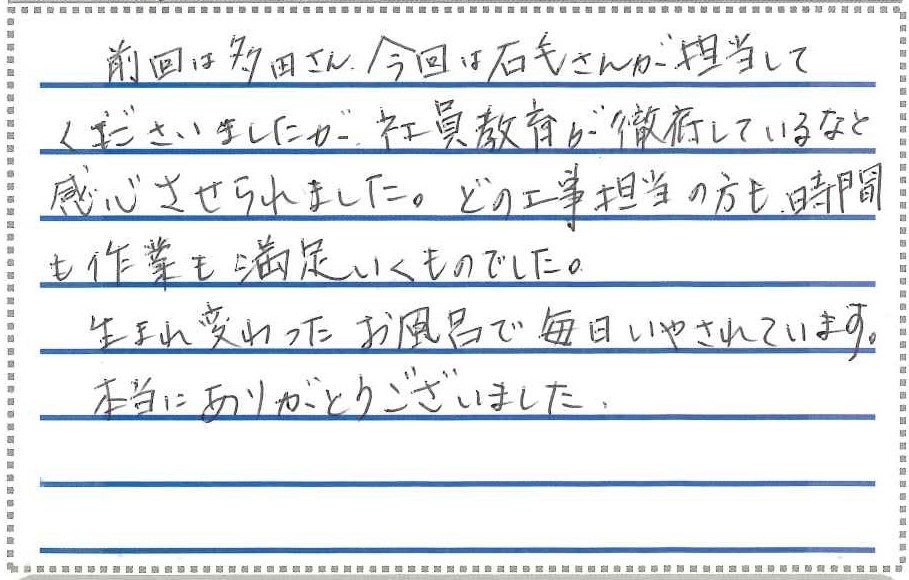 前回は多田さん、今回は石毛さんが担当して
くださいましたが、社員教育が徹底しているなと
感心させられました。どの工事担当の方も、時間
も作業も満足いくものでした。
生まれ変わったお風呂で毎日いやされています。
本当にありがとうございました。